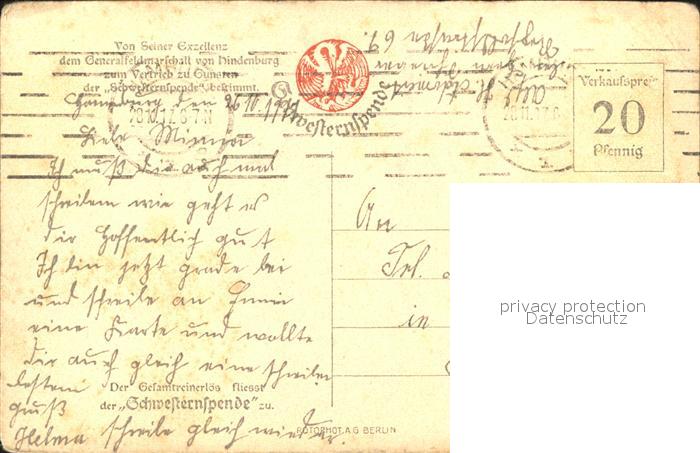 Von Seiner Exzellenz
dem Generalfeldmarschall von Hindenburg
zum Vertrieb zu Gunsten
der „Schwesternspende" bestimmt.
Schwesternspende
Verkaufspreis
20
Pfennig
Hamburg den 26.10.1917
Liebe
Ich muß dir auch mal
schreiben wie geht es
dir hoffentlich gut
Ich bin jetzt grade bei
und schreibe an
eine Karte und wollte
dir auch gleich eine schreiben
besten
Gruß
Helma schreibe gleich wieder.
An
Frl.
in
privacy protection
Datenschutz
Der Gesamtreinerlös fliesst
der „Schwesternspende" zu.
ROTOPHOT. A.G. BERLIN